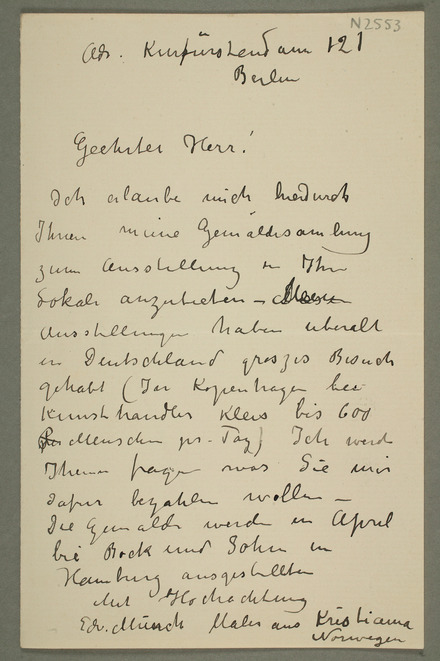 N2553
Adr. Kurfürstendam 121
Berlin
Geehrter Herr!
Ich erlaube mich hiedurch
Ihnen meine Gemäldesamlung
zum Ausstellung in Ihr
Lokale anzubieten –
Ausstellungen haben uberalt
in Deutschland groszes Besuch
gehabt (In Kopenhagen bei
Kunsthandler Kleis bis 600
Menschen pr. Tag) Ich werde
Ihnen fragen was Sie mir
dafur bezahlen wollen –
Die Gemälde werden in April
bei Bock und Sohn in
Hamburg ausgestellten
Mit Hochachtung
Edv. Munch Maler aus Kristiania
Norwegen